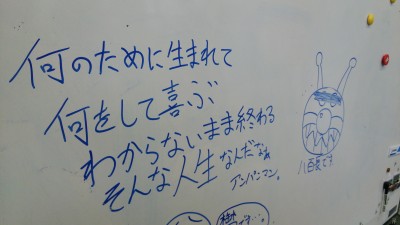 何のために生まれて
何をして喜ぶ
わからないまま終わる
そんな人生なんだなぁ
アンパンマン。
八百長です